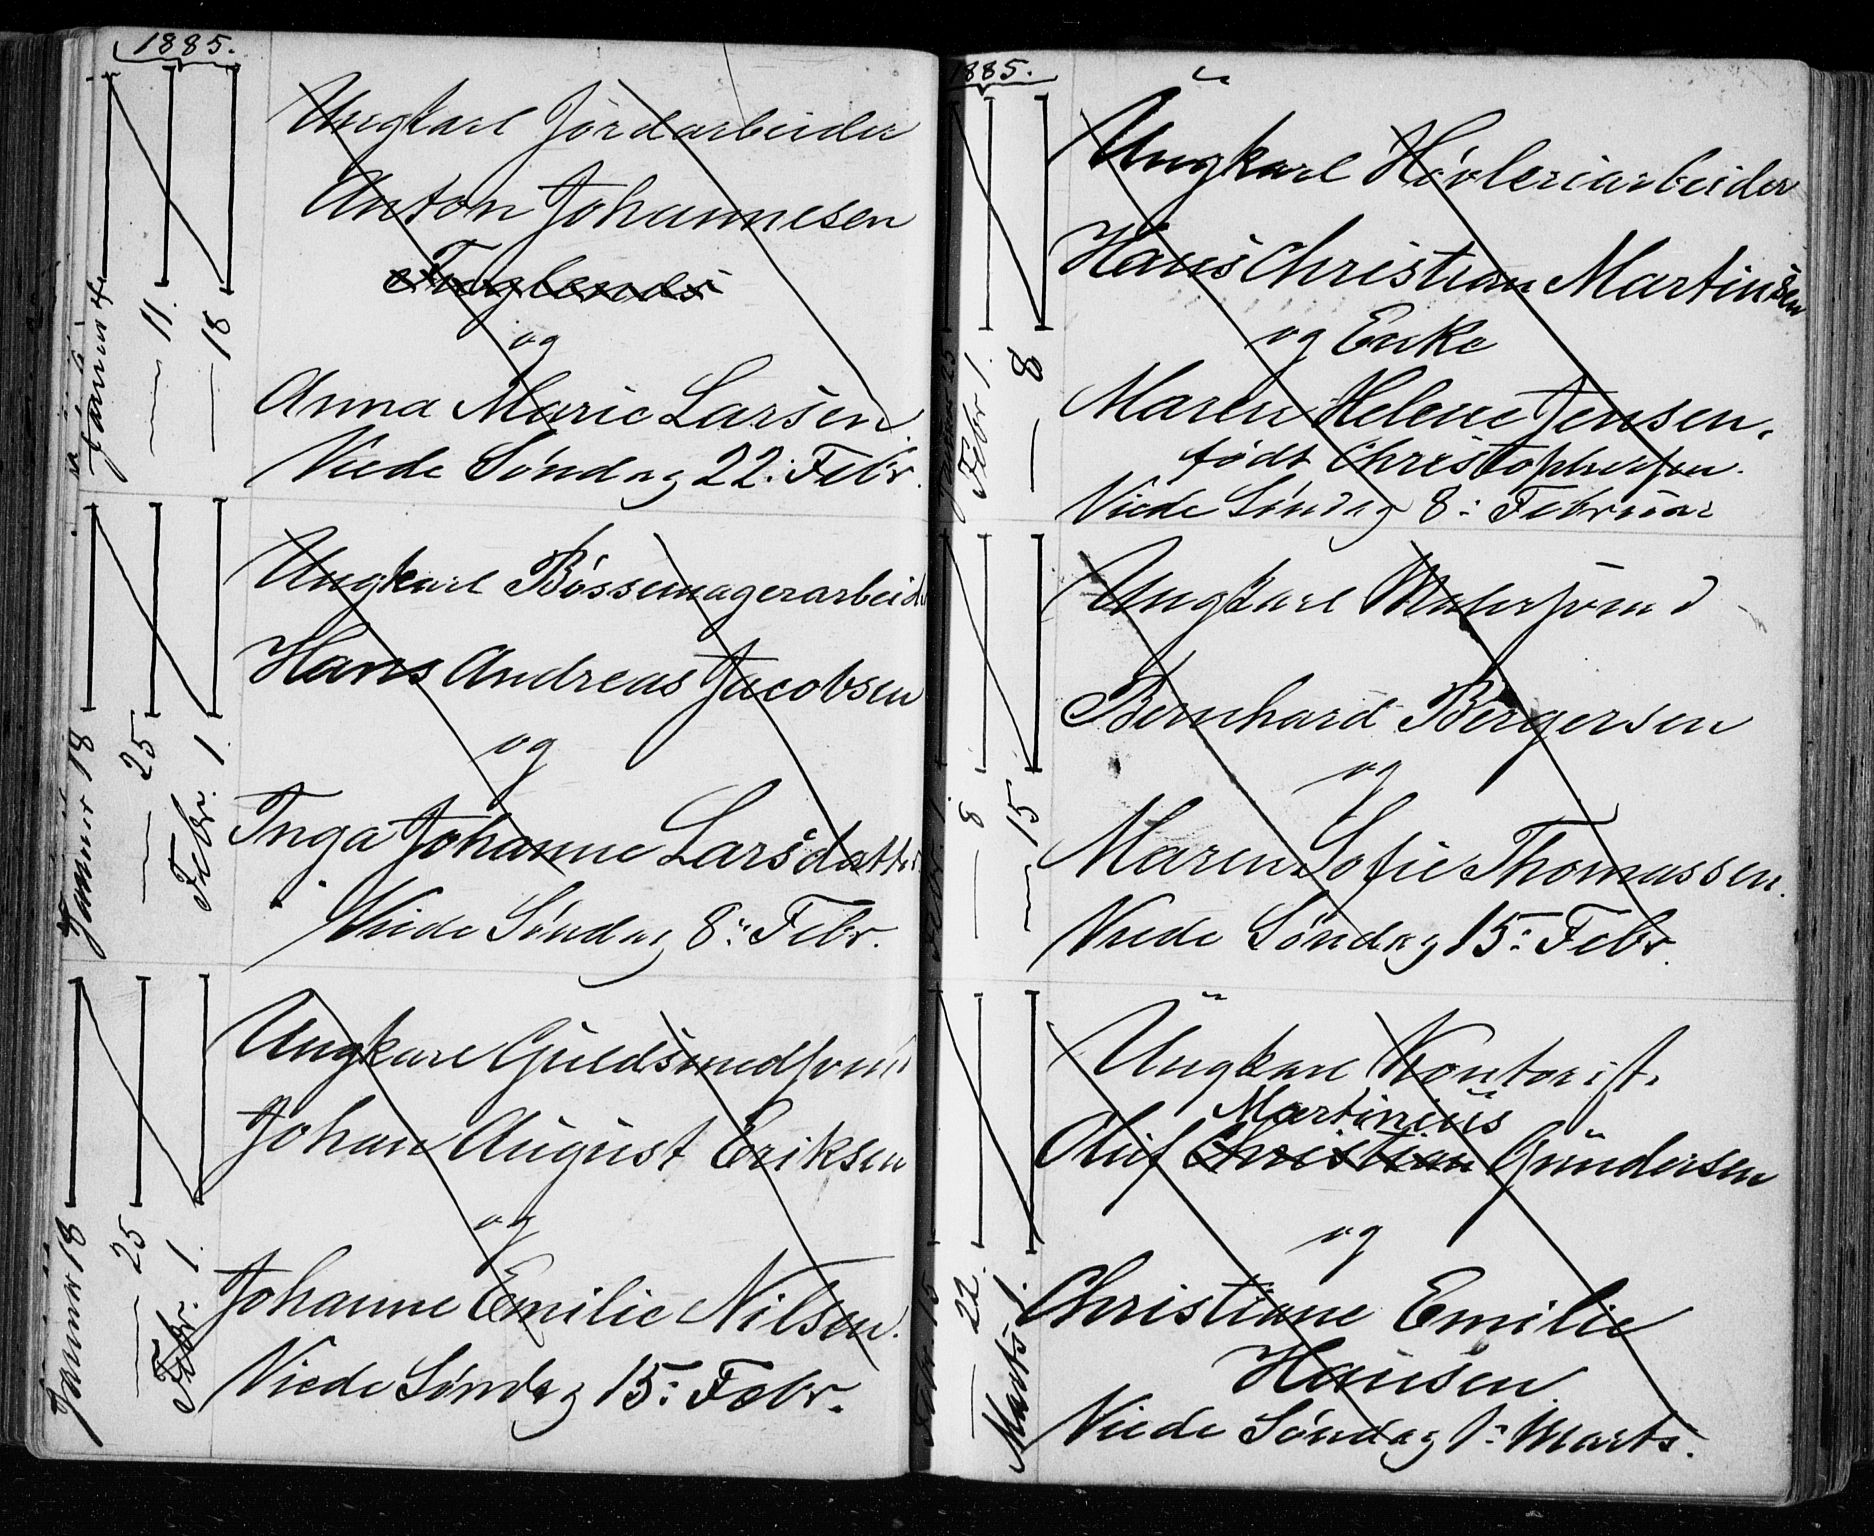 1885.
Januar 4
— 11.
— 18
Ungkarl Jordarbeider
Anton Johannesen
og
Anna Marie Larsen
Viede Søndag 22: Febr.
Januar 18
— 25
Febr. 1.
Ungkarl Bössemagerarbeid
Hans Andreas Jacobsen
og
Inga Johanne Larsdatter
Viede Søndag 8: Febr.
Januar 18
— 25
Febr. 1.
Ungkarl Guldsmedsvend
Johan August Eriksen
og
Johanne Emilie Nilsen.
Viede Søndag 15: Febr.
1885.
Januar 25
Febr 1.
— 8
Ungkarl Høvleriarbeider
Hans Christian Martinsen
og Enke
Maren Helene Jensen,
født Christophersen.
Viede Søndag 8: Februar
Febr. 1.
— 8
— 15
Ungkarl Malersvend
Bernhard Bergersen
og
Maren Sofie Thomassen.
Viede Søndag 15: Febr.
Febr. 15
— 22.
Marts 1.
Ungkarl Kontorist.
Martinius
Oluf Christian Gundersen
og
Christiane Emilie
Hansen
Viede Søndag 1: Marts.